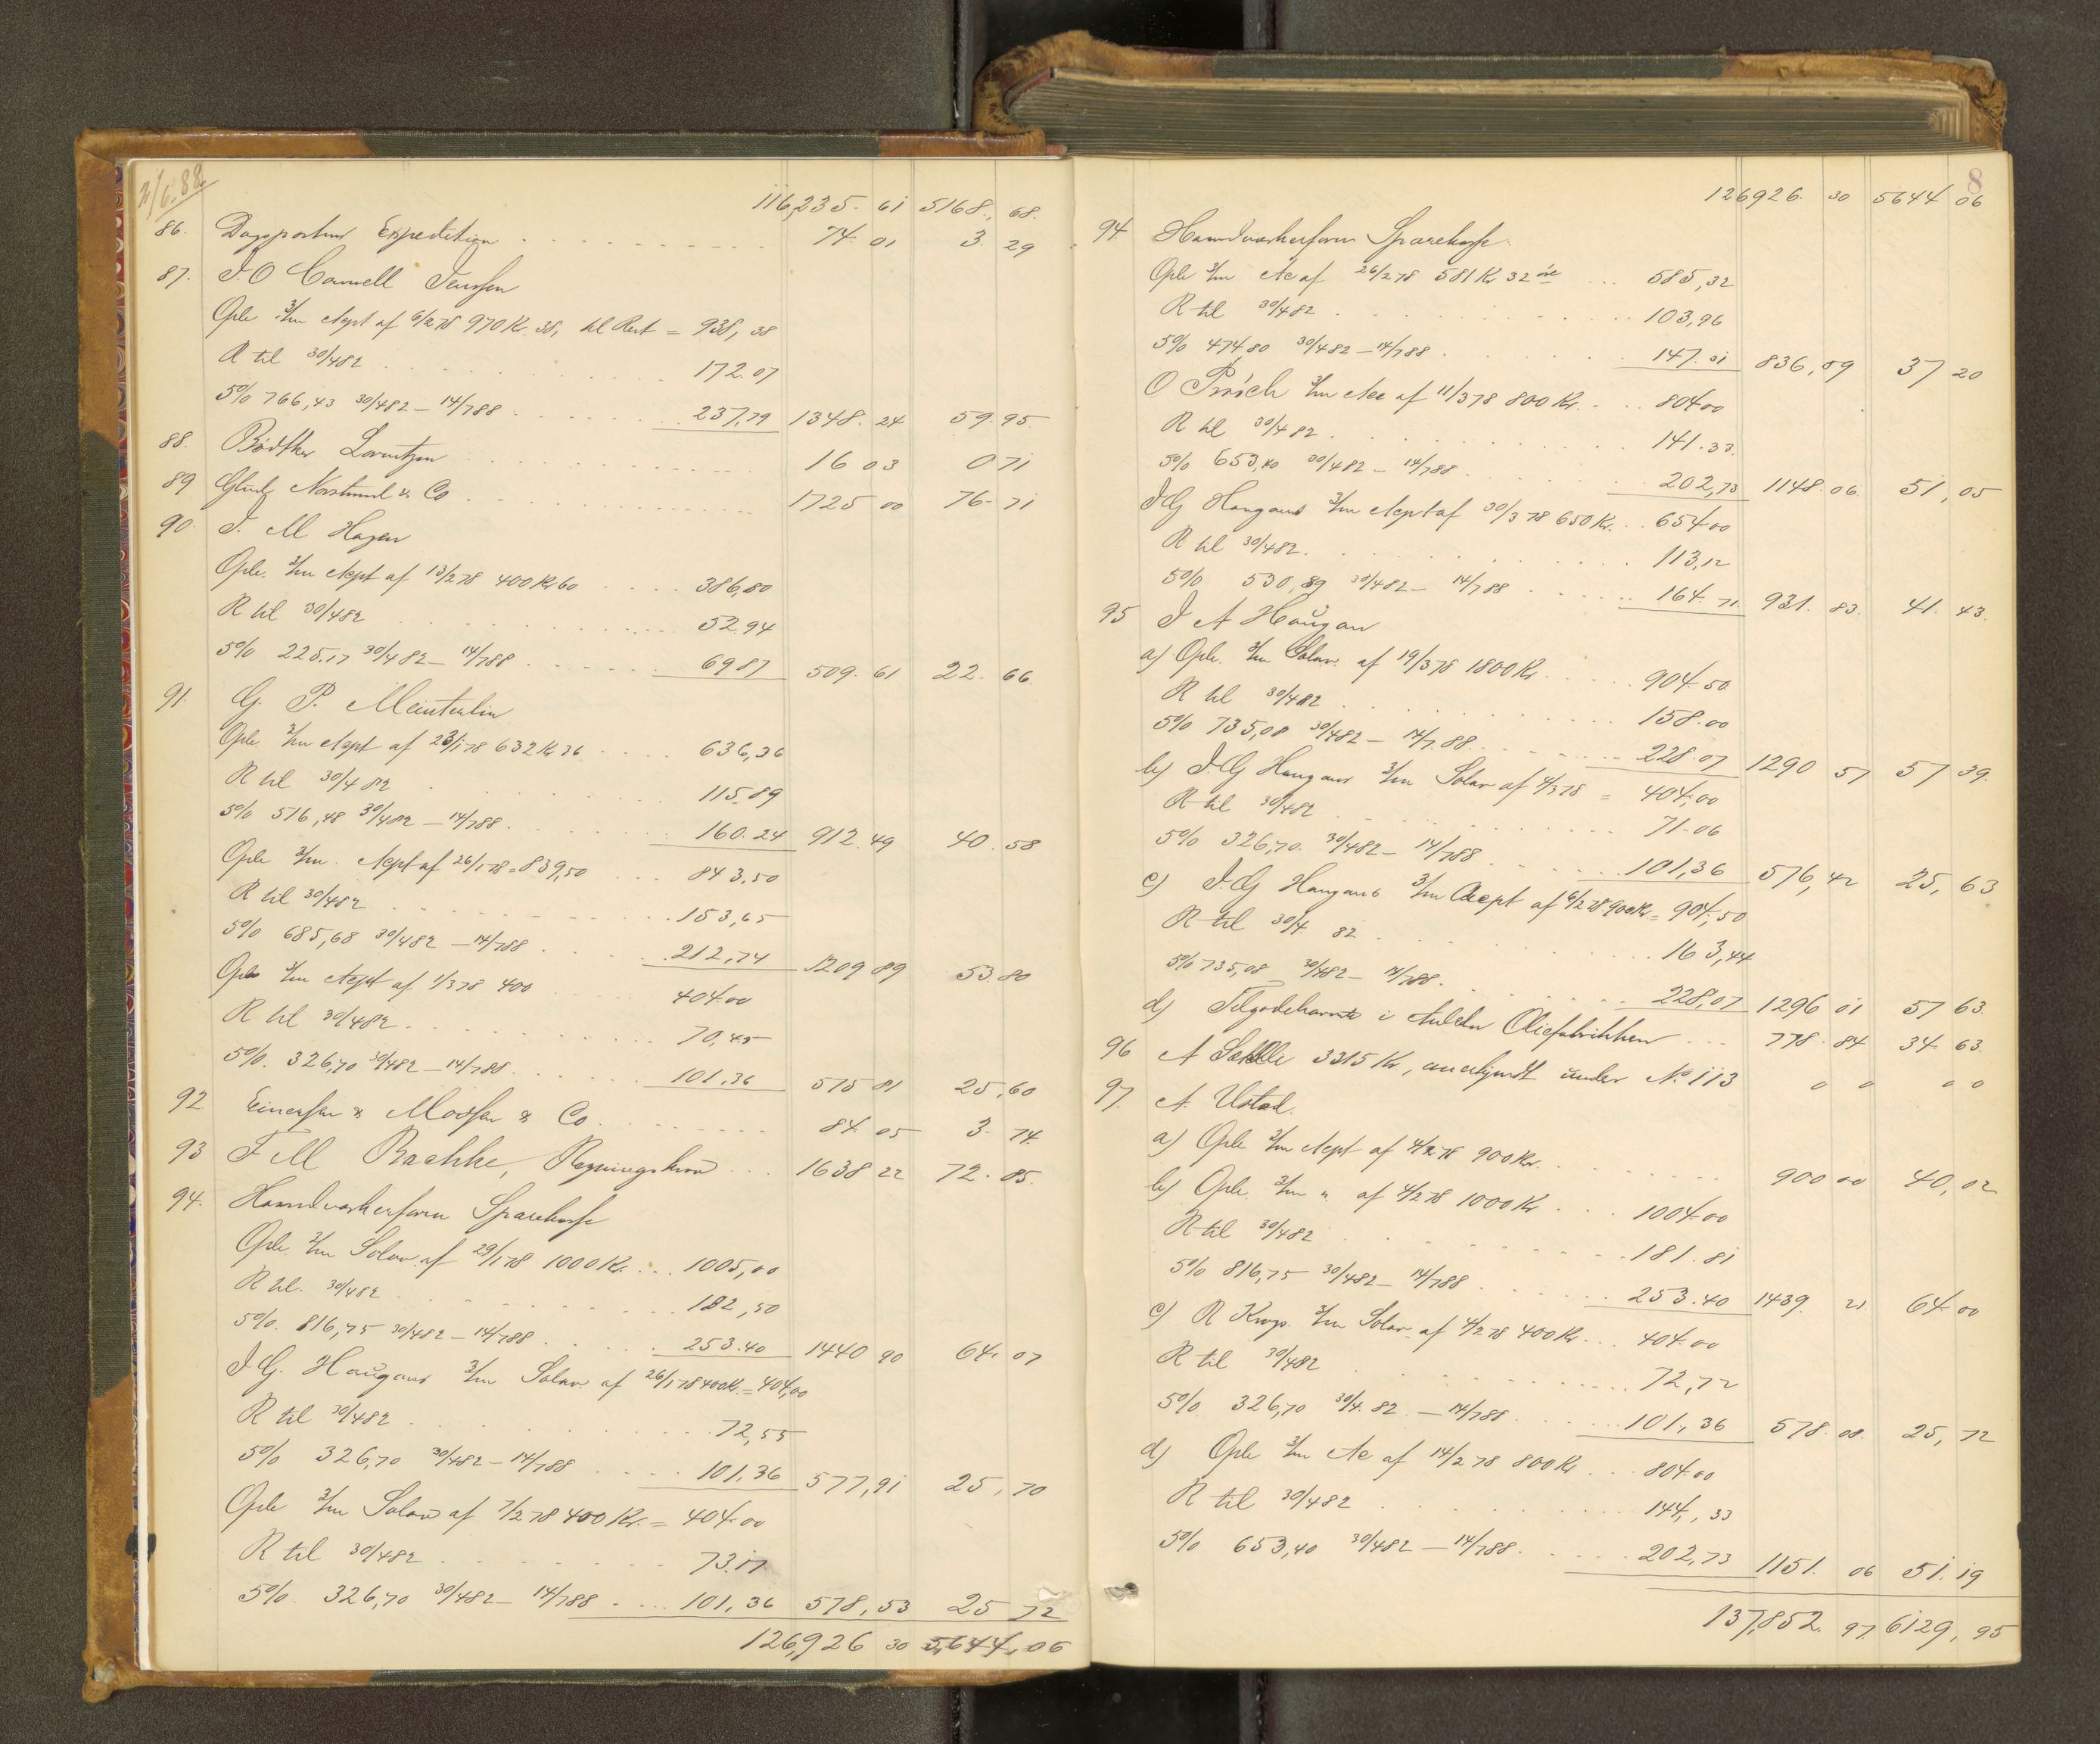 2/6.88.
116,235. 61 5168, 68.
86. Dagsposten Expedition 74. 01 3. 29
87. J. O Conwell Jenssen
Opl. 3/m Acpt af 6/2 78 970 Kr. 38, til Rest = 938, 38
R til 30/4 82 172.07
5% 766,43 30/4 82 – 14/7 88 237,79 1348. 24 59. 95.
88. Bödtker Lorentzen 16 03 0 71
89 Glück Norstrand & Co 1725 00 76. 71
90. J. M Hagen
Opl. 3/m Acpt af 13/2 78 400 Kr 60 386,80
R til 30/4 82 52.94
5% 225.17 30/4 82 – 14/7 88 69 87 509. 61 22. 66.
91. G. P.
Opl. 3/m Acpt af 23/1 78 632 Kr 36 636,36
R til 30/4 82 115.89
5% 516,48 30/4 82 – 14/7 88 160.24 912.49 40.58
Opl 3/m. Acpt af 26/1 78 = 839,50 843,50
R til 30/4 82 153,65
5% 685,68 30/4 82 – 14/7 88 212,74 1209 89 53.80
Opl 3/m Acpt af 1/3 78 400 404.00
R til 30/4 82 70,45
5% 326,70 30/4 82 – 14/7 88 101,36 575 81 25,60
92 Einersen & & Co 84. 05 3. 74.
93 F M Bachke, 1638 22 72. 85.
94. Haandværkerforn Sparekasse
Opl. 3/m Solav. af 29/1 78 1000 Kr. 1005,00
R til. 30/4 82 182,50
5% 816,75 30/4 82 – 14/7 88 253.40 1440 90 64. 07
J. G. Haugans 3/m Solav. af 26/1 78 400 Kr. = 404,00
R til 30/4 82 72,55
5% 326,70 30/4 82 – 14/7 88 101,36 577,91 25,70
Opl 3/m Solav af 7/2 78 400 Kr. = 404.00
R til 30/4 82 73.17
5% 326,70 30/4 82 – 14/7 88 101,36 578,53 25 72
126,926 30 5,644,06
8
126926. 30 5644 06
94. Haandværkerforn Sparekasse.
Opl 3/m Ac af 26/2 78 581 Kr 32 øre 585,32
R til 30/4 82 103,96
5% 474 80 30/4 82 – 14/7 88 147.31 836,59 37 20
O Pröch 3/m Acc af 11/3 78 800 Kr. 804 00
R til 30/4 82 141.33
5% 653,40 30/4 82 – 14/7 88 202,73 1148. 06 51,05
J G Haugans 3/m Acpt af 30/3 78 650 Kr. 654.00
R til 30/4 82. 113,12
5% 530,89 30/4 82 – 14/7 88 164. 71. 931. 83. 41. 43.
95 J A Haugan
a) Opl. 3/m Solav. af 19/3 78 1800 Kr. 904.50
R til 30/4 82 158.00
5% 735,08 30/4 82 – 14/7 88. 228.07 1290 57 57 39.
b) J. G Haugans 3/m Solav af 4/3 78 = 404,00
R til 30/4 82 71.06
5% 326,70. 30/4 82 – 14/7 88 101,36 576,42 25,63
c) J. G Haugans 3/m Accpt af 6/2 78 900 Kr = 904,50
R til 30/4 82 163,44
5% 735,08 30/4 82 – 14/7 88. 228,07 1296 01 57 63.
d) Tilgodehavnde i Oliefabrikken 778. 84 34. 63.
96 A 3315 Kr, anerkjendt under No 113 0 0 0 0
97. A. Ustad.
a) Opl 3/m Acpt af 4/2 78 900 Kr. 900 00 40,02
b) Opl. 3/m " af 4/2 78 1000 Kr 1004.00
R til 30/4 82 181.81
5% 816,75 30/4 82 – 14/7 88 253.40 1439. 21 64 00
c) R 3/m Solav. af 4/2 78 400 Kr. 404.00
R til 30/4 82 72,72
5% 326,70 30/4. 82. – 14/7 88 101,36 578. 08. 25,72
d) Opl 3/m Ac af 14/2 78 800 Kr 804.00
R til 30/4 82 144,33
5% 653,40 30/4 82 – 14/7 88. 202,73 1151. 06 51.19
137,852. 97. 6129,95